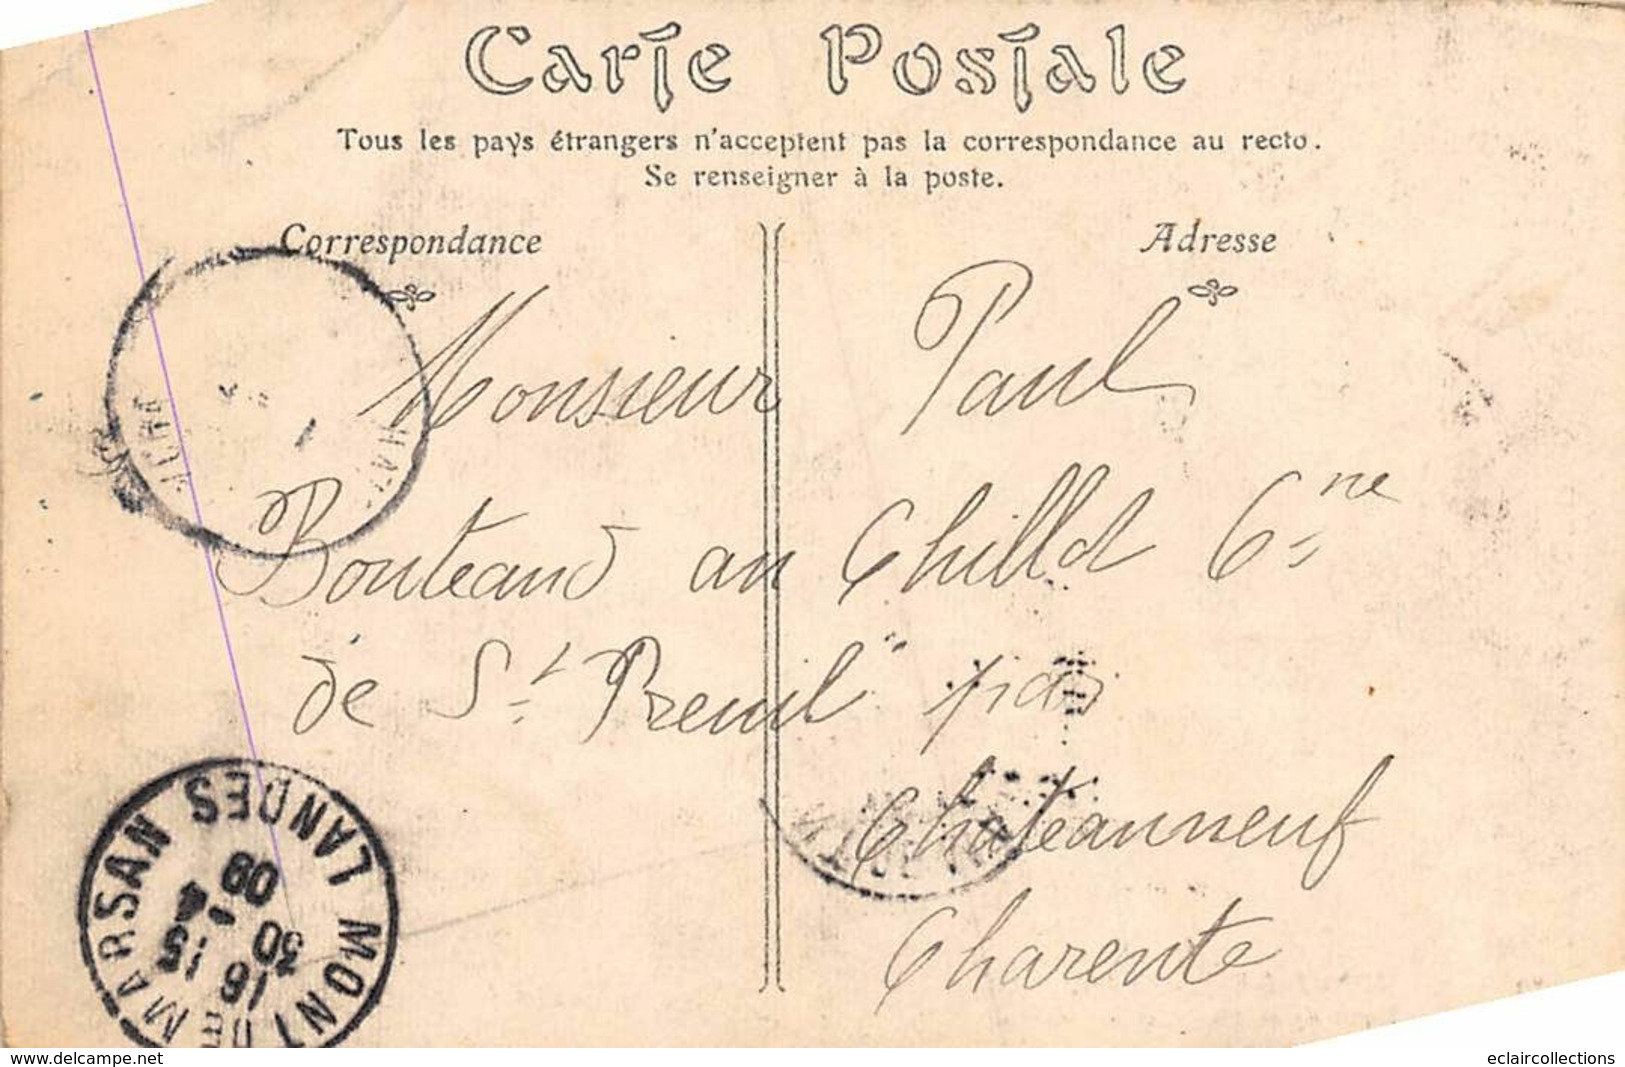 Carte Postale
Tous les pays étrangers n'acceptent pas la correspondance au recto.
Se renseigner à la poste.
Correspondance
Adresse
Monsieur Paul
Bouteaud au Chillot Cne
de St. Preuil par
Chateauneuf
Charente
MONT DE MARSAN LANDES
16 15
30 -4
09
www.delcampe.net
eclaircollections